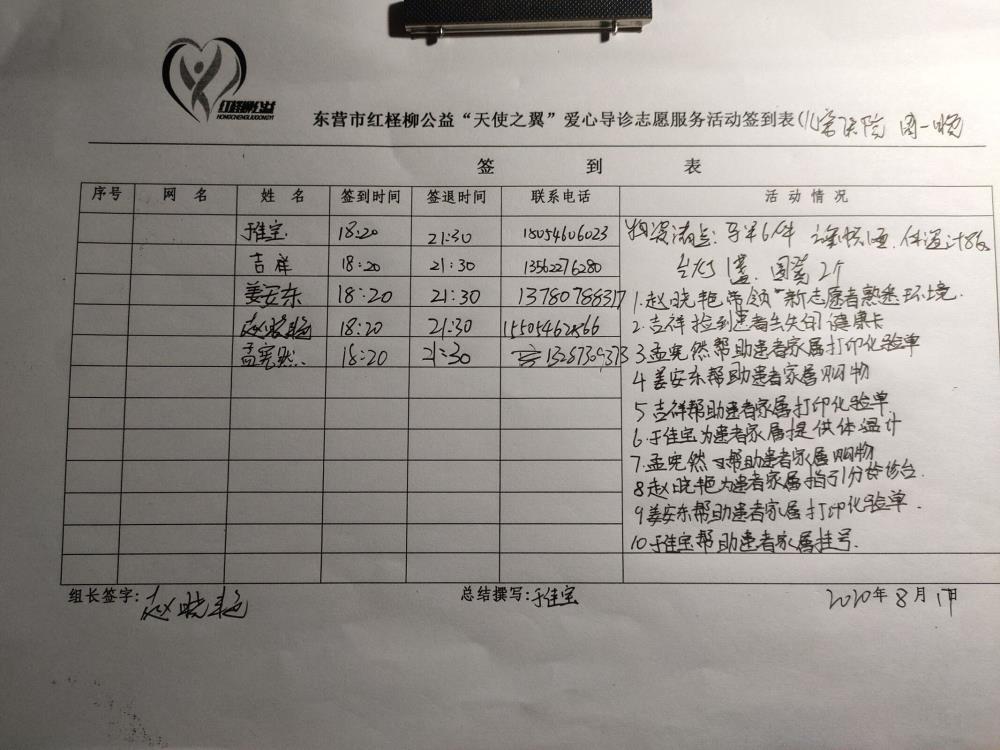 红柽柳公益
HONGCHENGLIUGONGYI
东营市红柽柳公益“天使之翼”爱心导诊志愿服务活动签到表(儿童医院 周一晚
签 到 表
序号 网 名 姓 名 签到时间 签退时间 联系电话 活 动 情 况
于佳宝 18:20 21:30 18054606023
吉祥 18:20 21:30 13562276280
姜安东 18:20 21:30 13780788317
赵晓艳 18:20 21:30
孟宪然 18:20 21:30
物资清点: 马甲6件 体温计8支
台灯1盏. 围裙2个
1.赵晓艳带领新志愿者熟悉环境.
2.吉祥捡到患者丢失的健康卡
3.孟宪然帮助患者家属打印化验单
4 姜安东帮助患者家属购物
5 吉祥帮助患者家属打印化验单
6.于佳宝为患者家属提供体温计
7.孟宪然帮助患者家属购物
8.赵晓艳为患者家属指引分诊台.
9姜安东帮助患者家属打印化验单.
10于佳宝帮助患者家属挂号.
组长签字:赵晓艳 总结撰写:于佳宝 2020年8月17日